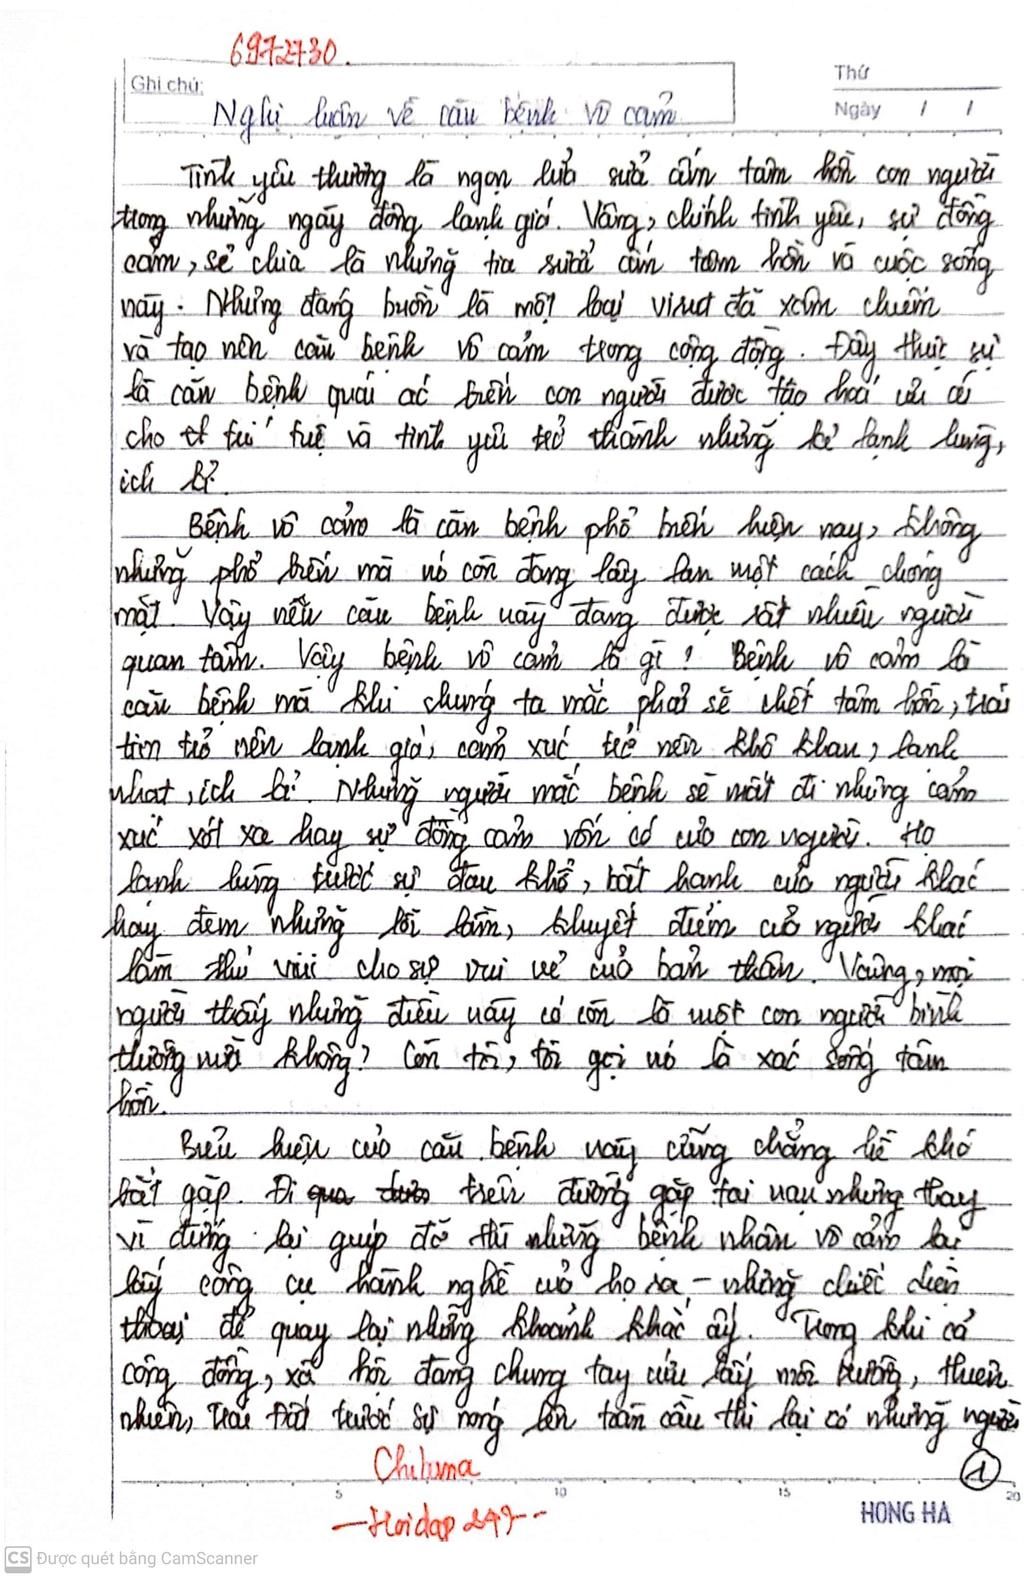 6972730.
Ghi chú:
Thứ
Ngày / /
Nghị luận về căn bệnh vô cảm
Tình yêu thương là ngọn lửa sưởi ấm tâm hồn con người
trong những ngày đông lạnh giá. Vâng, chính tình yêu, sự đồng
cảm, sẻ chia là những tia sưởi ấm tâm hồn và cuộc sống
này. Nhưng đáng buồn là một loại virut đã xâm chiếm
và tạo nên căn bệnh vô cảm trong cộng đồng. Đây thực sự
là căn bệnh quái ác biến con người được tạo hoá ưu ái
cho trí tuệ và tình yêu trở thành những kẻ lạnh lùng,
ích kỉ.
Bệnh vô cảm là căn bệnh phổ biến hiện nay, không
những phổ biến mà nó còn đang lây lan một cách chóng
mặt. Vậy nên căn bệnh này đang được rất nhiều người
quan tâm. Vậy bệnh vô cảm là gì? Bệnh vô cảm là
căn bệnh mà khi chúng ta mắc phải sẽ chết tâm hồn, trái
tim trở nên lạnh giá, cảm xúc trở nên khô khan, lạnh
nhạt, ích kỉ. Những người mắc bệnh sẽ mất đi những cảm
xúc xót xa hay sự đồng cảm vốn có của con người. Họ
lạnh lùng trước sự đau khổ, bất hạnh của người khác
hay đem những lỗi lầm, khuyết điểm của người khác
làm thú vui cho sự vui vẻ của bản thân. Vâng, mọi
người thấy những điều này có còn là một con người bình
thường nữa không? Còn tôi, tôi gọi nó là xác sống tâm
hồn.
Biểu hiện của căn bệnh này cũng chẳng hề khó
bắt gặp. Đi trên đường gặp tai nạn nhưng thay
vì dừng lại giúp đỡ thì những bệnh nhân vô cảm lại
lấy công cụ hành nghề của họ ra - những chiếc điện
thoại để quay lại những khoảnh khắc ấy. Trong khi cả
cộng đồng, xã hội đang chung tay cứu lấy môi trường, thiên
nhiên, Trái Đất trước sự nóng lên toàn cầu thì lại có những người
Chiluma
1
5 10 15 20
-Hoidap 247--
HONG HA
CS Được quét bằng CamScanner